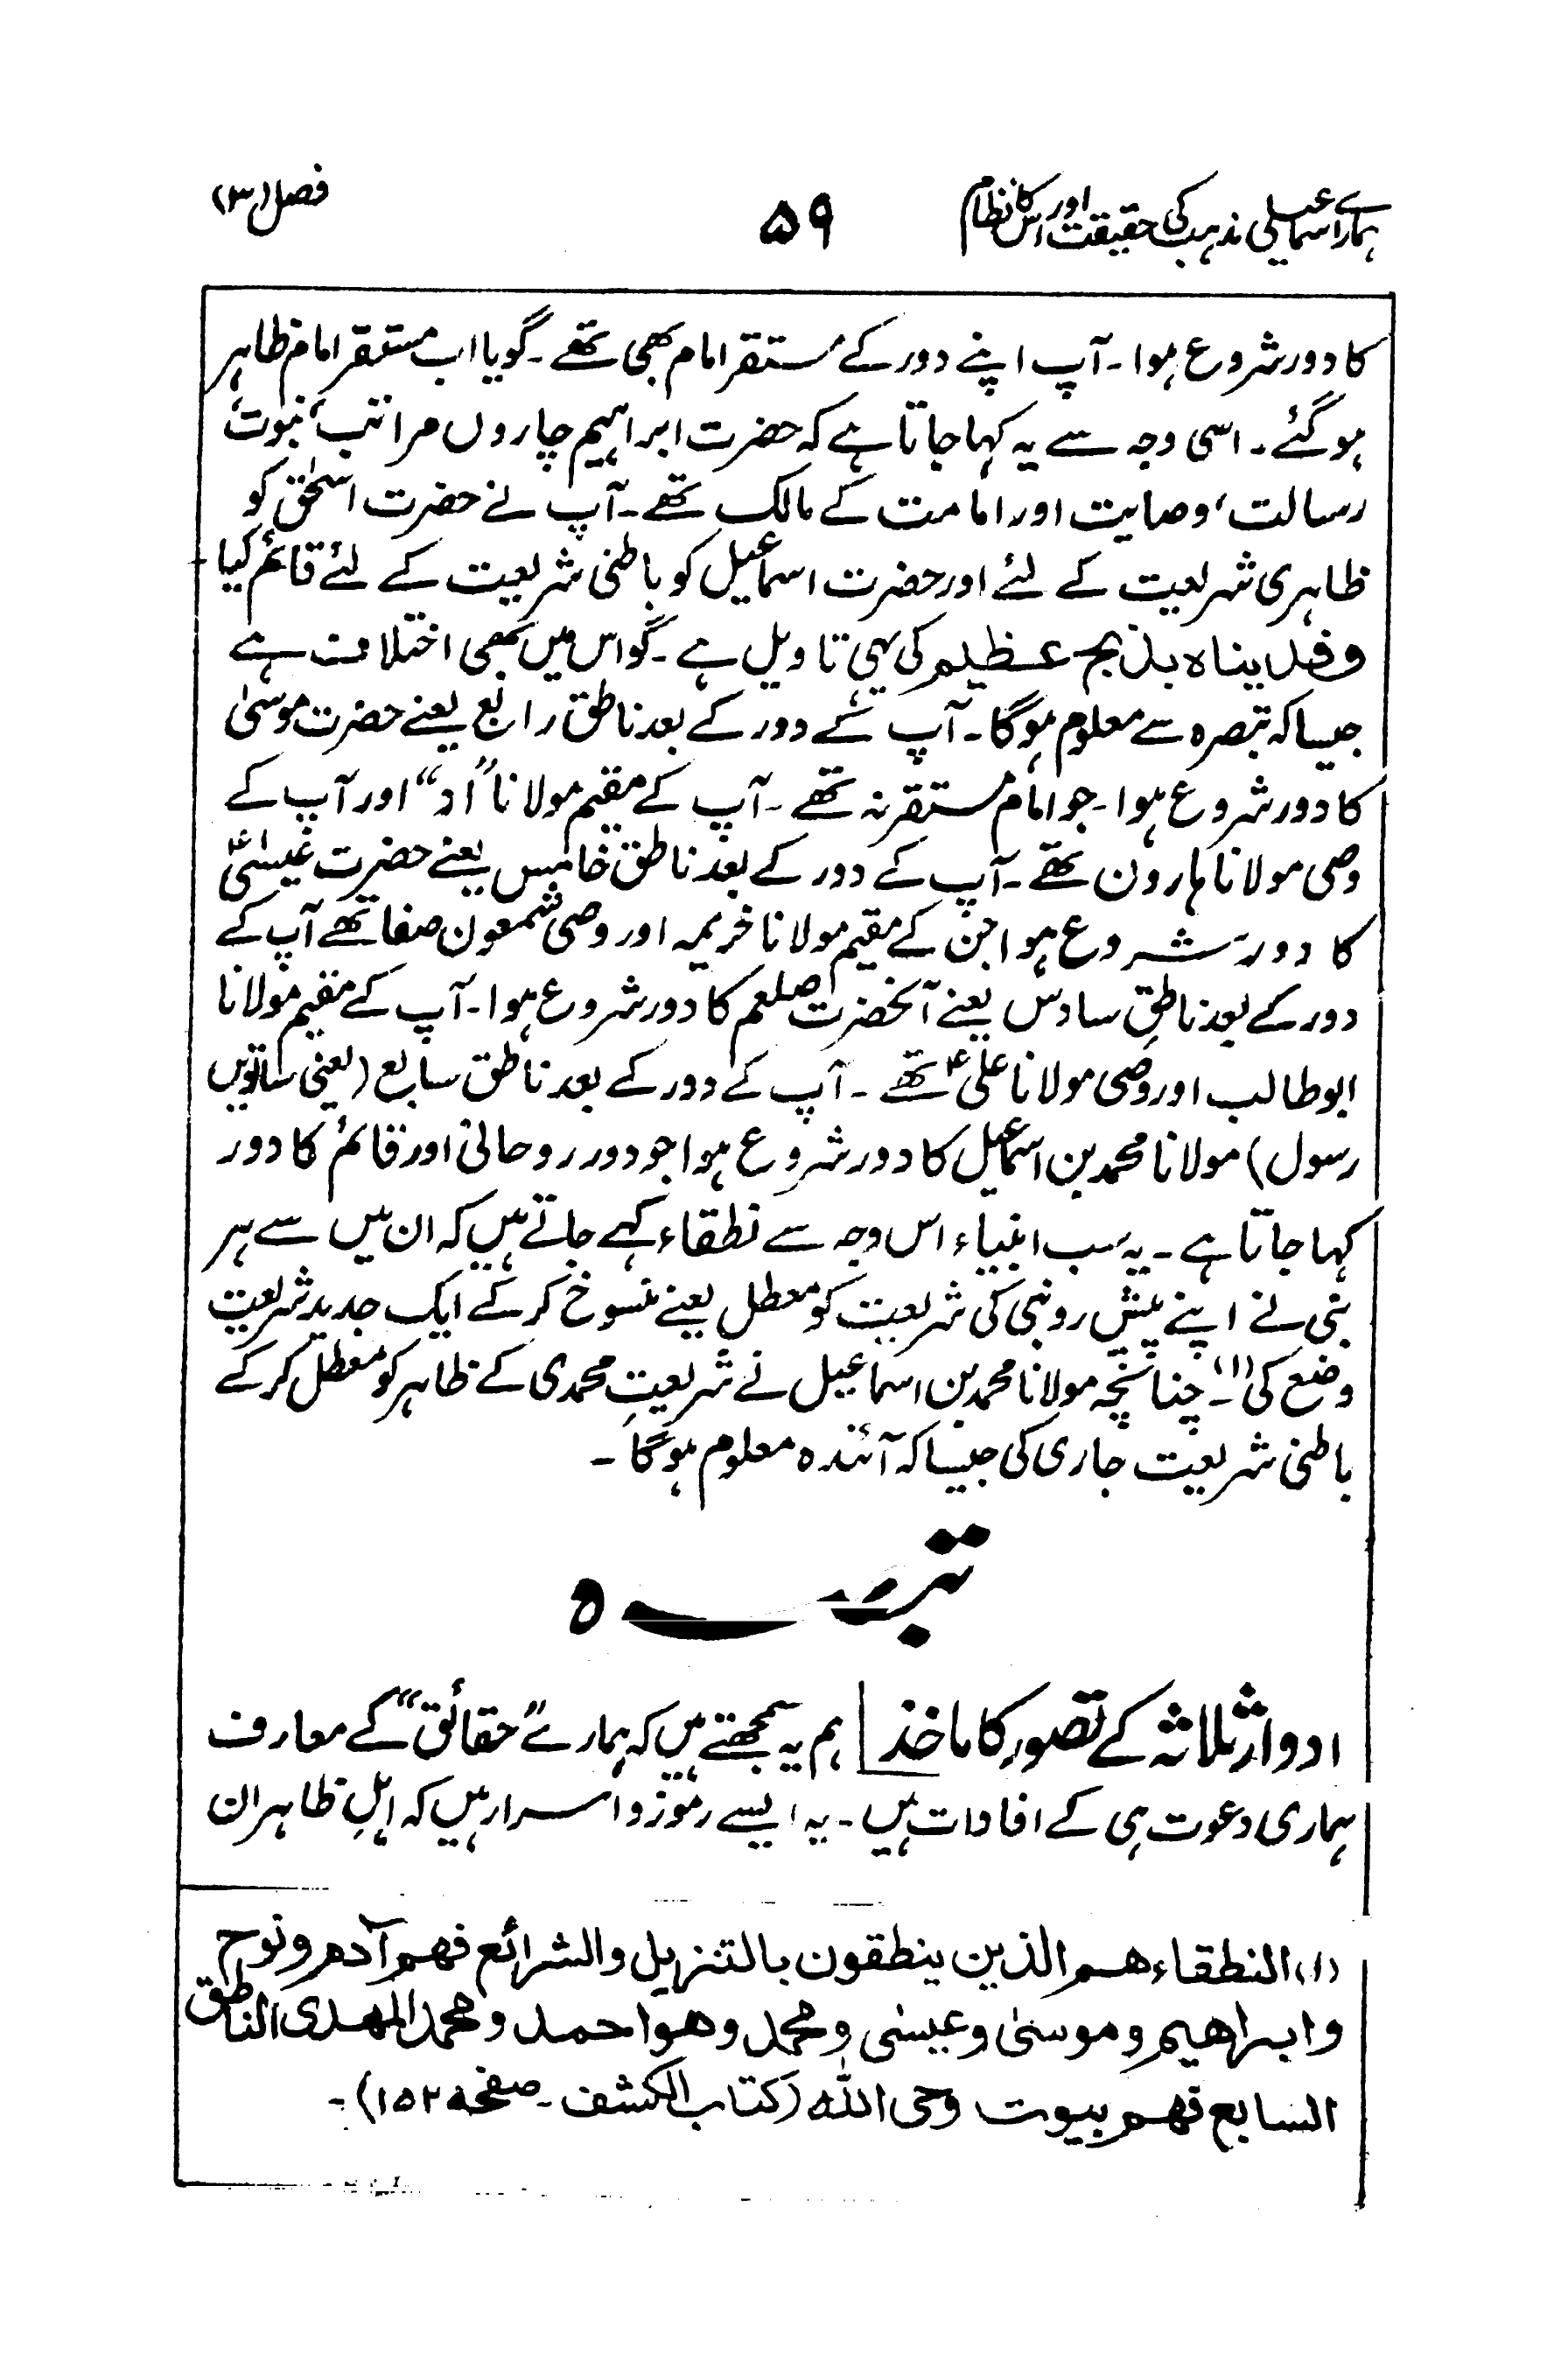 ہمارے اسماعیلی مذہب کی حقیقت اور اس کا نظام ۵۹ فصل (۳)
کا دور شروع ہوا۔ آپ اپنے دور کے مستقر امام بھی تھے۔ گویا اب مستقر امام ظاہر
ہو گئے۔ اسی وجہ سے یہ کہا جاتا ہے کہ حضرت ابراہیم چاروں مراتب، نبوت،
رسالت، وصایت اور امامت کے مالک تھے۔ آپ نے حضرت اسحٰق کو
ظاہری شریعت کے لئے اور حضرت اسماعیل کو باطنی شریعت کے لئے قائم کیا
وفدیناہ بذبح عظیم کی یہی تاویل ہے۔ گو اس میں بھی اختلاف ہے
جیسا کہ تبصرہ سے معلوم ہوگا۔ آپ کے دور کے بعد ناطق رابع یعنے حضرت موسیٰ
کا دور شروع ہوا۔ جو امام مستقر نہ تھے۔ آپ کے مقیم مولانا "اد" اور آپ کے
وصی مولانا ہارون تھے۔ آپ کے دور کے بعد ناطق خامس یعنے حضرت عیسیٰؑ
کا دور شروع ہوا جن کے مقیم مولانا خزیمہ اور وصی شمعون صفا تھے آپ کے
دور کے بعد ناطقِ سادس یعنے آنحضرت صلعم کا دور شروع ہوا۔ آپ کے مقیم مولانا
ابوطالب اور وصی مولانا علیؑ تھے۔ آپ کے دور کے بعد ناطق سابع (یعنی ساتویں
رسول) مولانا محمد بن اسماعیل کا دور شروع ہوا جو دور روحانی اور قائم کا دور
کہا جاتا ہے۔ یہ سب انبیاء اس وجہ سے نطقاء کہے جاتے ہیں کہ ان میں سے ہر
نبی نے اپنے پیش رو نبی کی شریعت کو معطل یعنے منسوخ کر کے ایک جدید شریعت
وضع کی (۱)۔ چنانچہ مولانا محمد بن اسماعیل نے شریعتِ محمدی کے ظاہر کو معطل کر کے
باطنی شریعت جاری کی جیسا کہ آئندہ معلوم ہوگا۔
تبصرہ
ادوارِ ثلاثہ کے تصور کا ماخذ | ہم یہ سمجھتے ہیں کہ ہمارے "حقائق" کے معارف
ہماری دعوت ہی کے افادات ہیں۔ یہ ایسے رموز و اسرار ہیں کہ اہلِ ظاہر ان
(۱) النطقاء هم الذين ينطقون بالتنزيل والشرائع فهم آدم ونوح
وابراهيم وموسىٰ وعيسى ومحمد وهو احمد ومحمد المهدى الناطق
السابع فهم بيوت وحى الله (كتاب الكشف ۔ صفحه ۱۵۲)۔